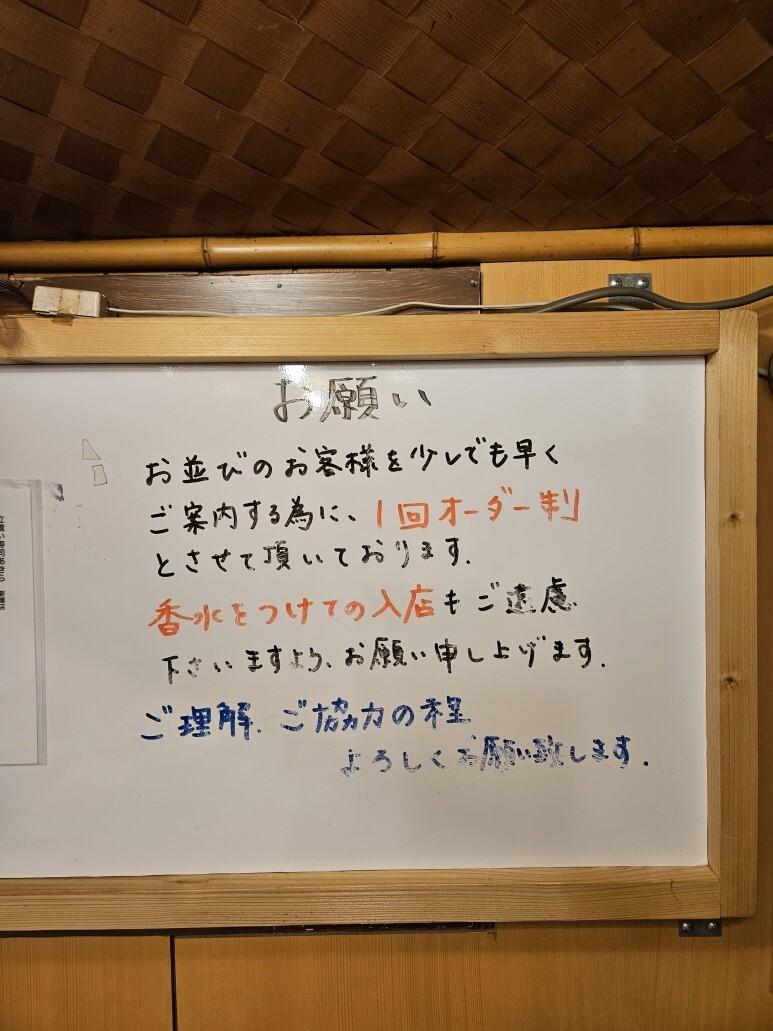 お願い
お並びのお客様を少しでも早く
ご案内する為に、1回オーダー制
とさせて頂いております.
香水をつけての入店もご遠慮
下さいますよう、お願い申し上げます.
ご理解.ご協力の程
よろしくお願い致します.
立喰い寿司あきら 新橋店